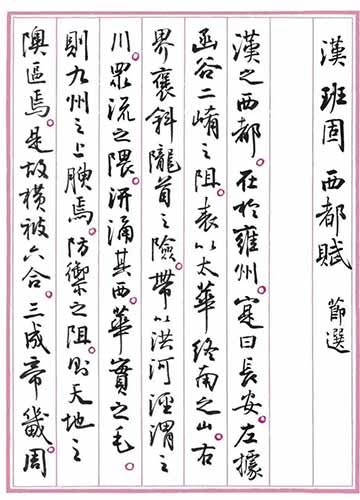 漢 班固 西都賦 節選
漢之西都。在於雍州。寔曰長安。左據
函谷二崤之阻。表以太華終南之山。右
界褒斜隴首之險。帶以洪河涇渭之
川。眾流之隈。汧涌其西。華實之毛。
則九州之上腴焉。防禦之阻。則天地之
隩區焉。是故橫被六合。三成帝畿。周